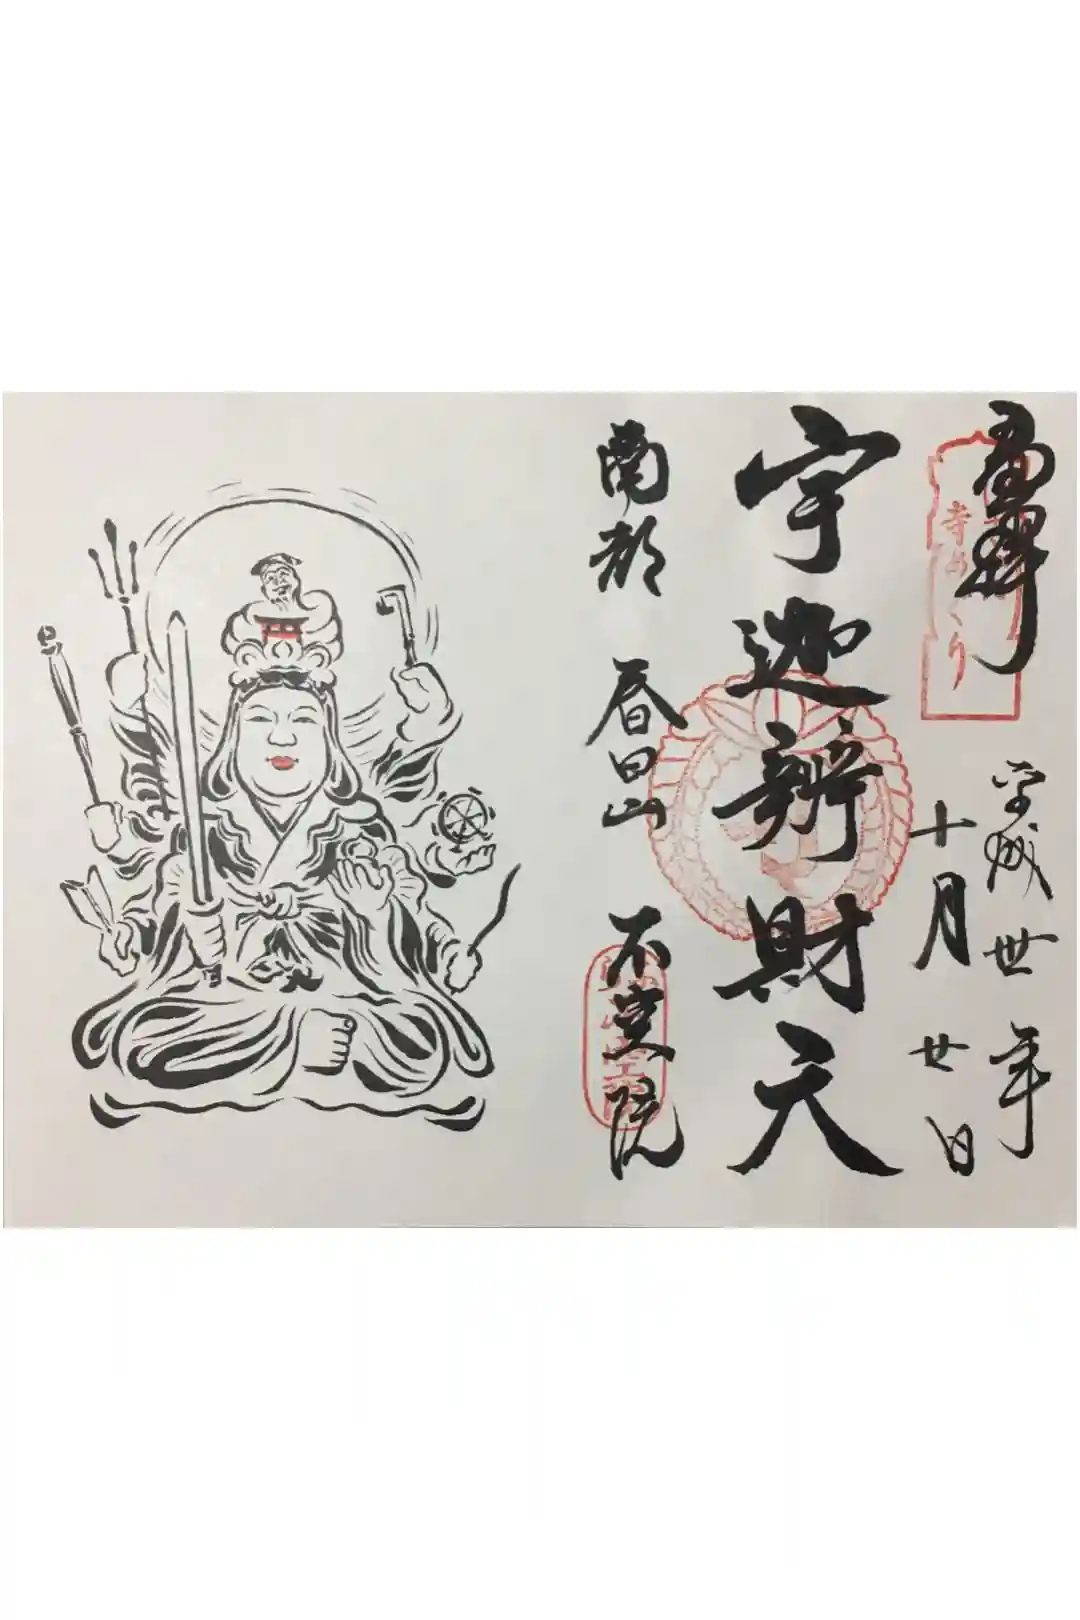 奉拝
平成卅年
十月廿日
宇迦辨財天
南都 春日山 不空院
寺めぐり